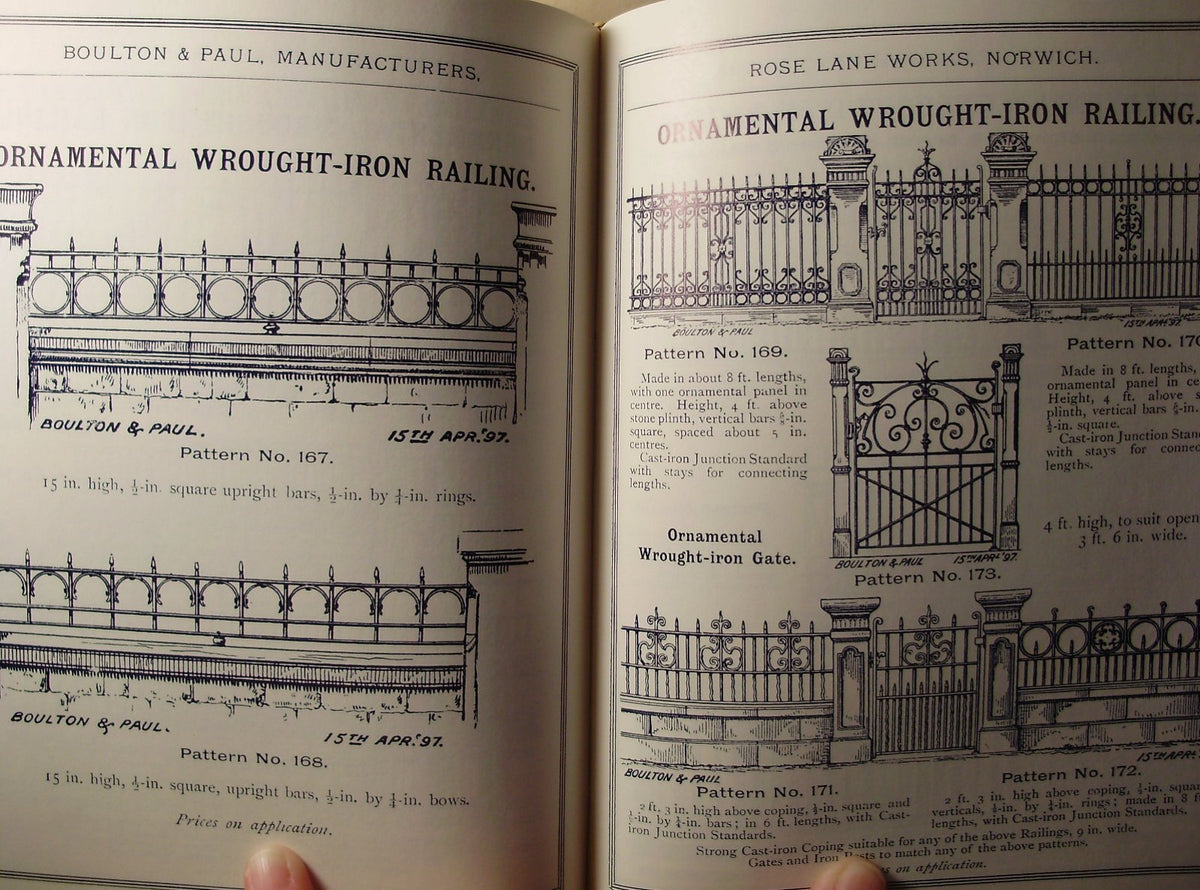 BOULTON & PAUL, MANUFACTURERS,
ORNAMENTAL WROUGHT-IRON RAILING.
BOULTON & PAUL.
15TH APR: 97.
Pattern No. 167.
15 in. high, ½-in. square upright bars, ½-in. by ¼-in. rings.
BOULTON & PAUL.
15TH APR: 97.
Pattern No. 168.
15 in. high, ½-in. square, upright bars, ½-in. by ¼-in. bows.
Prices on application.
ROSE LANE WORKS, NORWICH.
ORNAMENTAL WROUGHT-IRON RAILING.
BOULTON & PAUL
15TH APRL 97.
Pattern No. 169.
Made in about 8 ft. lengths,
with one ornamental panel in
centre. Height, 4 ft. above
stone plinth, vertical bars -in.
square, spaced about 5 in.
centres.
Cast-iron Junction Standard
with stays for connecting
lengths.
Pattern No. 170
Made in 8 ft. lengths,
ornamental panel in ce
Height, 4 ft. above s
plinth, vertical bars -in.
½-in. square.
Cast-iron Junction Stand
with stays for connec
lengths.
Ornamental
Wrought-iron Gate.
BOULTON & PAUL
15TH APRL 97.
Pattern No. 173.
4 ft. high, to suit open
3 ft. 6 in. wide.
BOULTON & PAUL
15TH APR
Pattern No. 171.
2 ft. 3 in. high above coping, -in. square and
-in. by ¼-in. bars; in 6 ft. lengths, with Cast-
iron Junction Standards.
Pattern No. 172.
2 ft. 3 in. high above coping, ½-in. squa
verticals, ½-in. by ¼-in. rings; made in 8 f
lengths, with Cast-iron Junction Standards.
Strong Cast-iron Coping suitable for any of the above Railings, 9 in. wide.
Gates and Iron Posts to match any of the above patterns.
s on application.